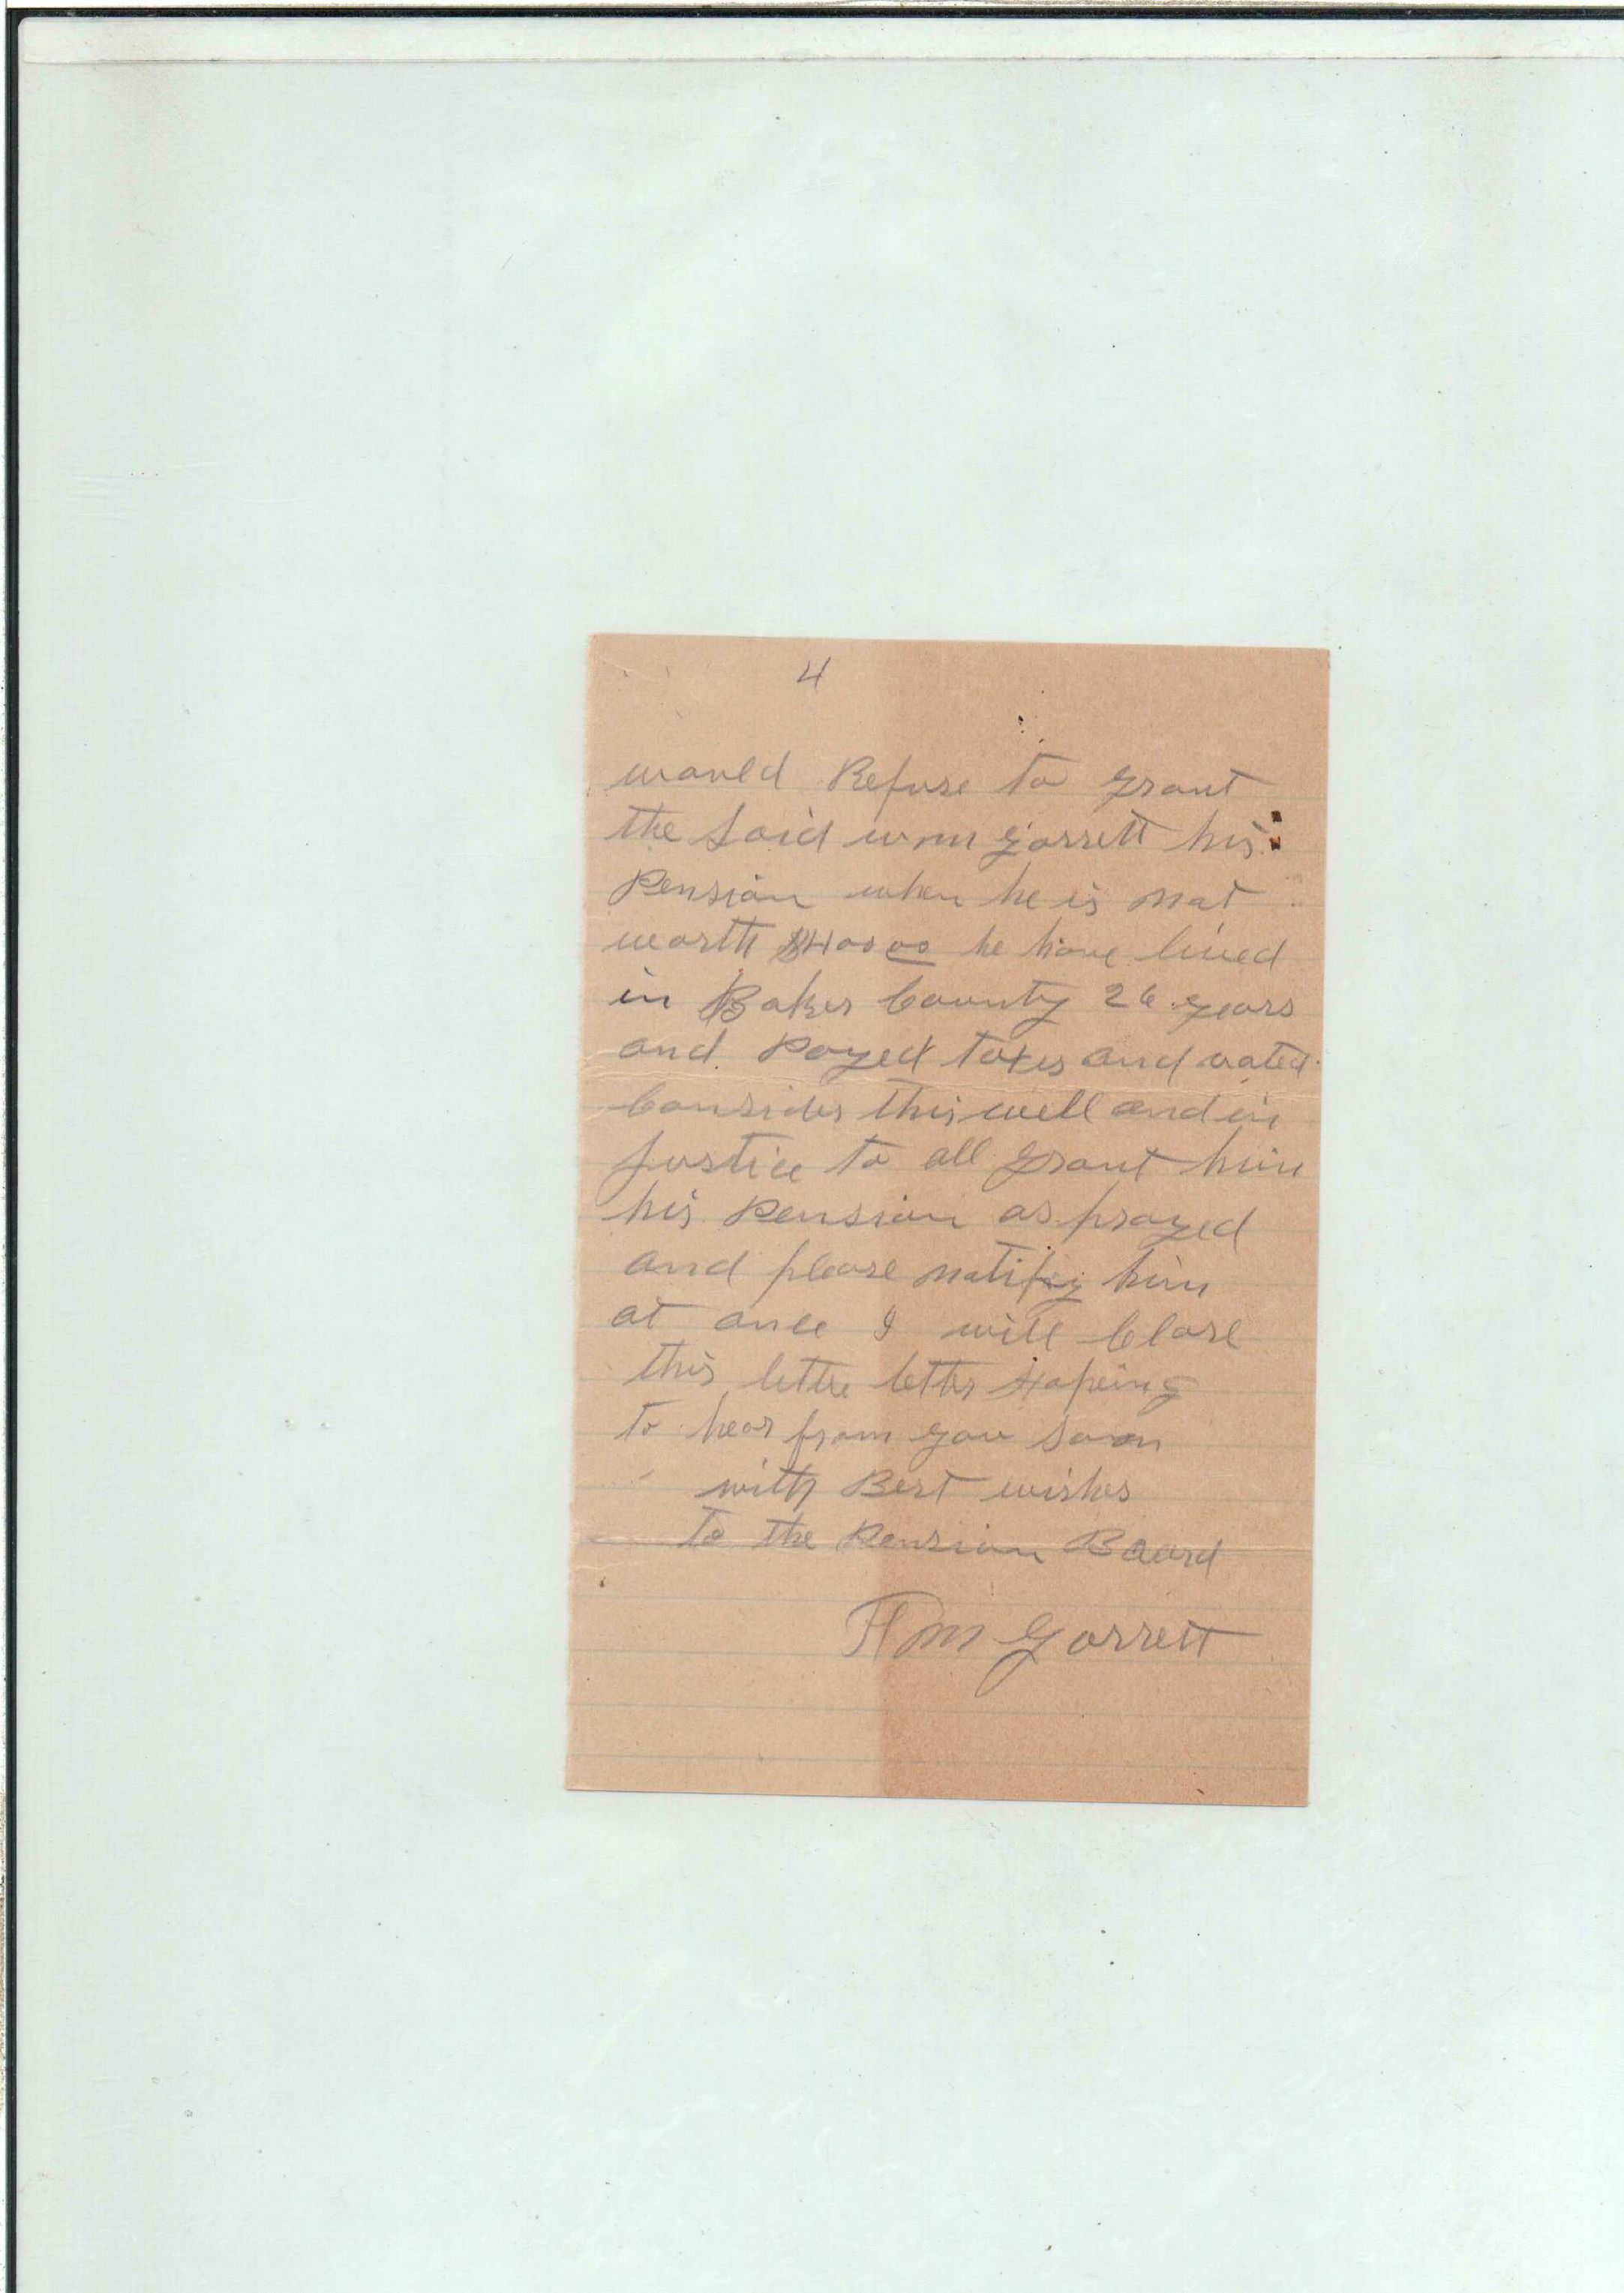 4
would Refuse to grant
the Said wm Garrett his
Pension when he is not
worth $400 00 he have lived
in Baker County 26 years
and Payed taxes and voted
Consider this well and in
Justice to all grant him
his Pension as prayed
and please notify him
at once I will Close
this letter letter Hopeing
to hear from you soon
with Best wishes
To the Pension Board
M Garrett